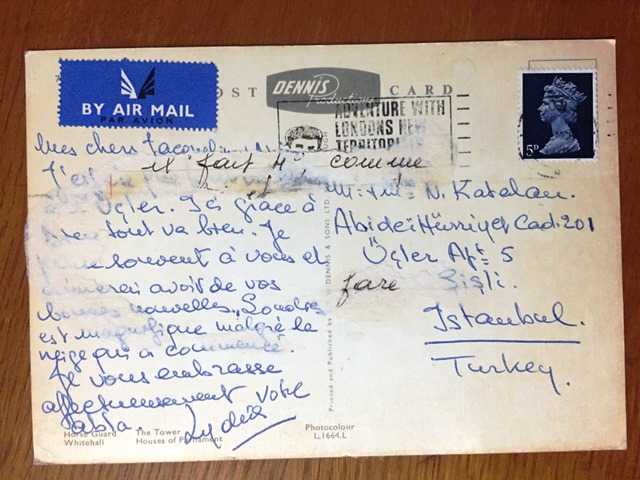 BY AIR MAIL
PAR AVION
POST CARD
DENNIS
Productions
ADVENTURE WITH
LONDONS NEW
5D
Mes chers
il fait comme
J'ai
Üçler. Ici grâce à
tout va bien. Je
souvent à vous et
avoir de vos
bonnes nouvelles. Londres
est magnifique malgré la
neige qui a commencé.
Je vous embrasse
affectueusement Votre
N. Katalan.
Abidei Hürriyet Cad. 201
Üçler Apt. 5
Şişli.
Istanbul.
Turkey.
Printed and Published by W. DENNIS & SONS LTD.
Horse Guard The Tower
Whitehall Houses of Parliament
Photocolour
L.1664.L